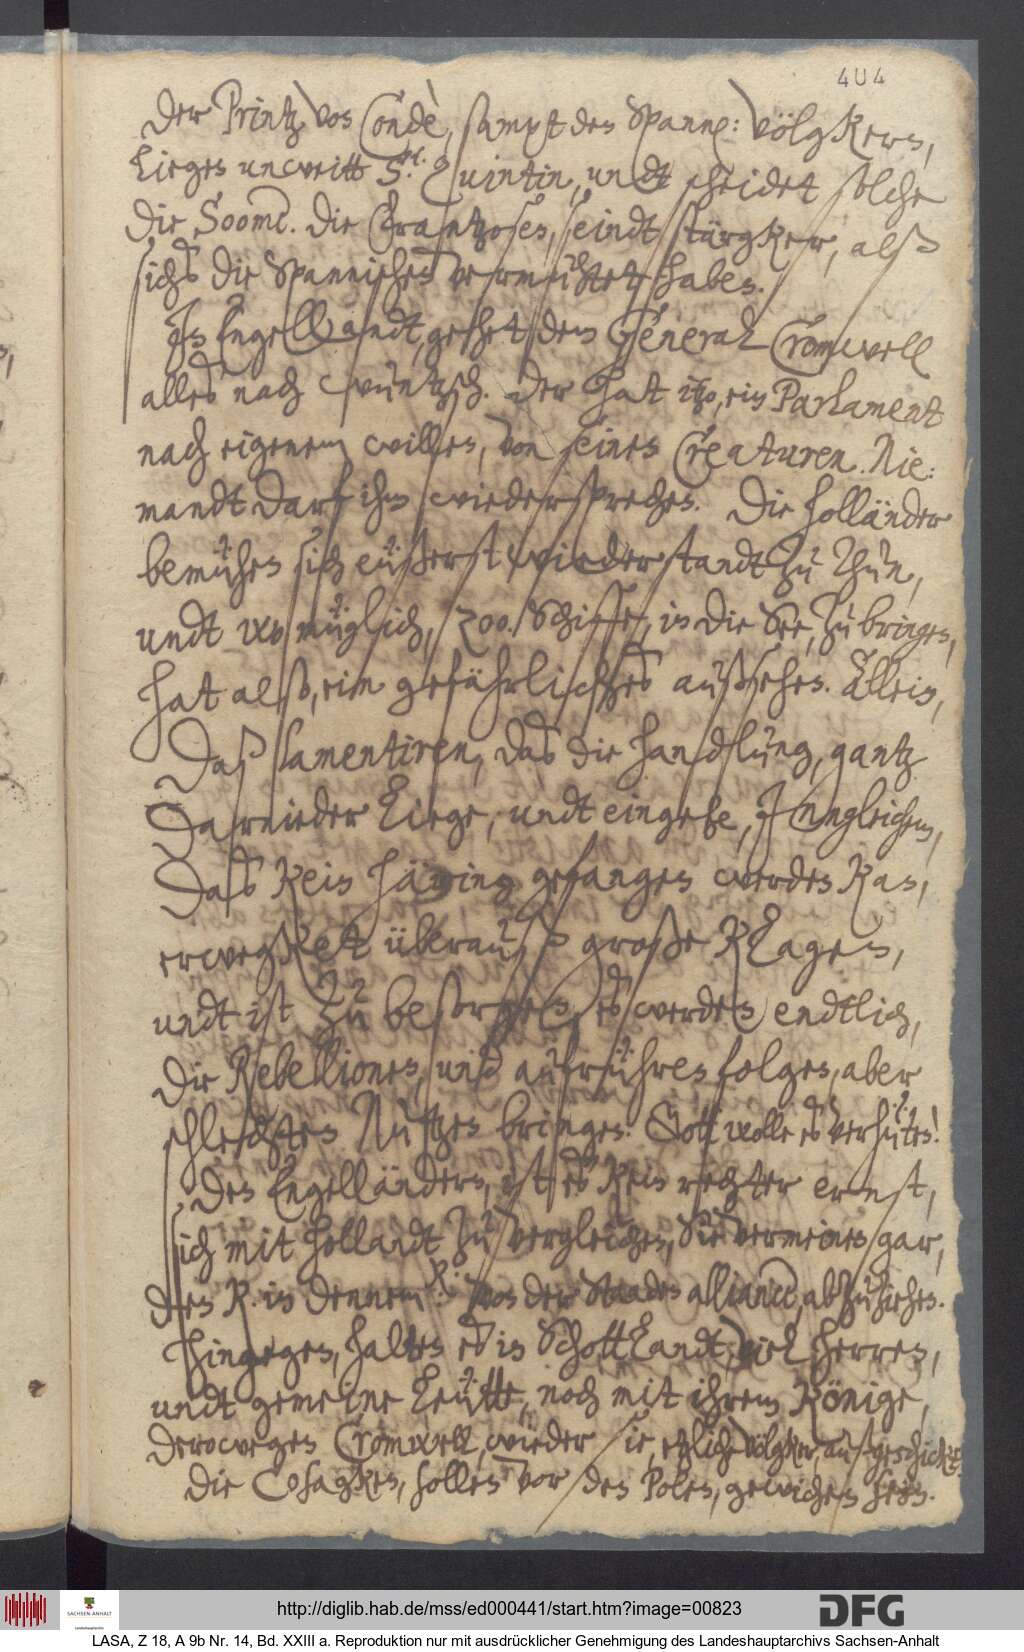 404
Der Printz von Condè, sampt den Spann: völgkern,
liegen unweitt St. Quintin, undt scheidet solche
die Soome. Die Frantzosen, seindt stärgker, alß
sichs die Spannischen vermuhtet haben.
In Engellandt, gehet dem General Cromwell
alles nach wuntzsch. Der hat itzo, ein Parlament
nach eigenem willen, von seinen Creaturen. Nie:
mandt darf ihm wiedersprechen. Die Holländer
bemühen sich eüßerst wiederstandt zu thun,
undt wo müglich, 200. Schiffe, in die See, zu bringen,
hat alß, ein gefährliches außsehen. Allein,
Daß lamentiren, das die handlung, gantz
darnieder liege, undt eingehe, Imgleichem,
Das kein häring gefangen werden kan,
erwegket überauß große klagen,
undt ist zu besorgen, es werden endtlich,
die Rebellionen, und aufrühren folgen, aber
schlechten Nutzen bringen. Gott wolle es verhüten!
Den Engelländern, ist es kein rechter ernst,
sich mit Hollandt zu vergleichen, Sie vermeinen gar,
den K. in Dennem: K. von der Staaden alliance, abzuziehen.
Hingegen, halten es in Schottlandt, viel Herren,
undt gemeine leütte, noch mit ihrem Könige,
derowegen Cromwell, wieder sie, etzliche völgker, außgeschickt.
Die Cosagken, sollen vor den Polen, gewichen sein.
http://diglib.hab.de/mss/ed000441/start.htm?image=00823
SACHSEN-ANHALT
DFG
LASA, Z 18, A 9b Nr. 14, Bd. XXIII a. Reproduktion nur mit ausdrücklicher Genehmigung des Landeshauptarchivs Sachsen-Anhalt